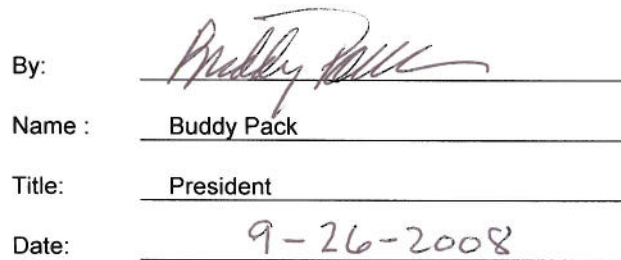 By: Buddy Pack
Name : Buddy Pack
Title: President
Date: 9-26-2008